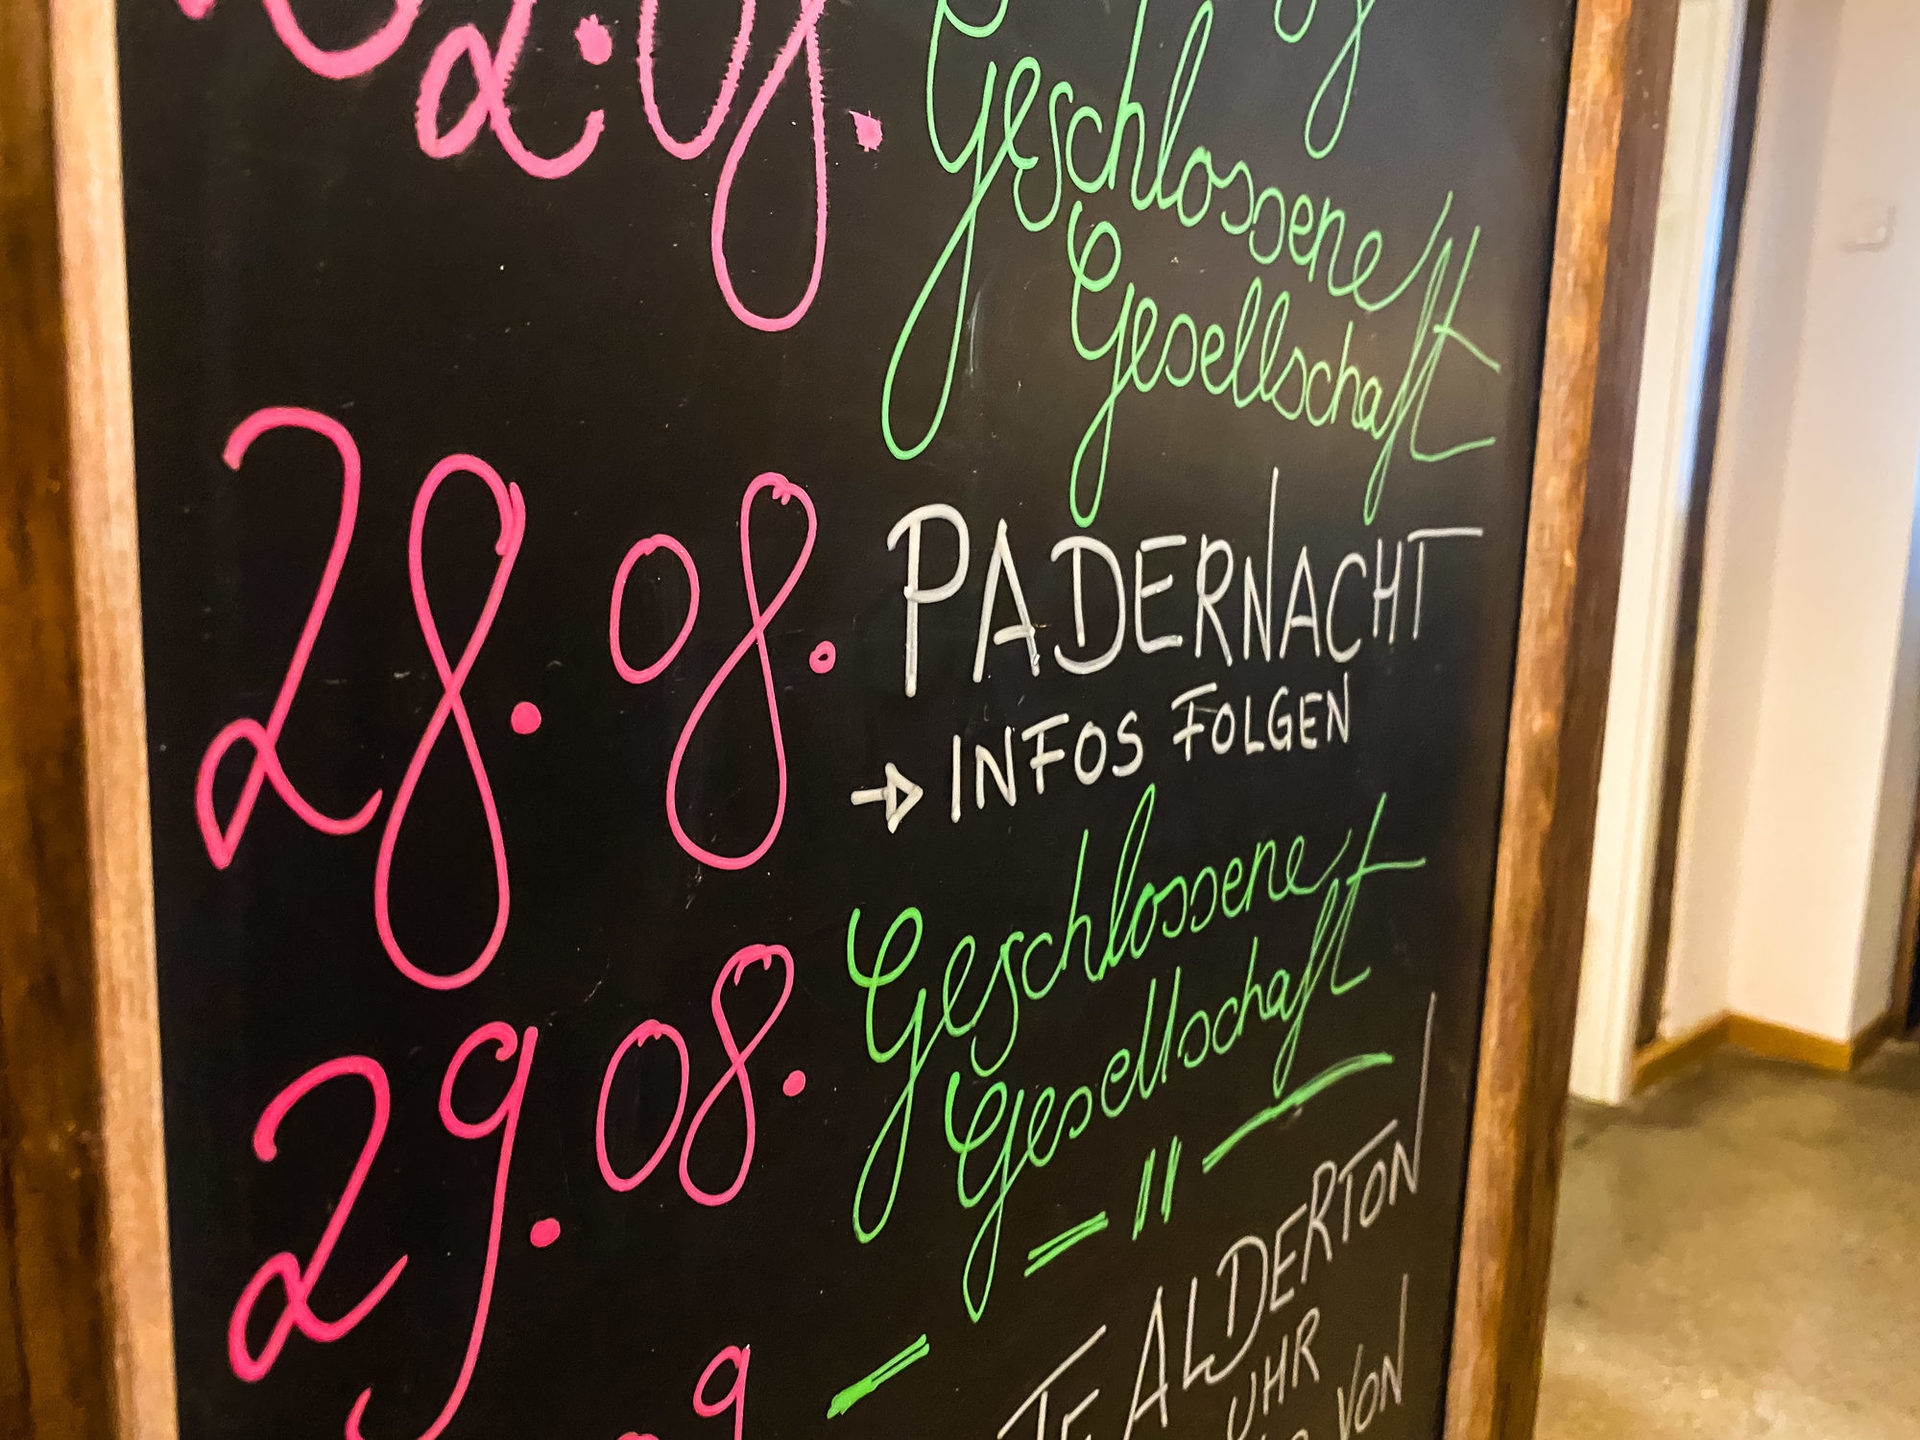 Geschlossene
Gesellschaft
28. 08. PADERNACHT
→ INFOS FOLGEN
29. 08. Geschlossene
Gesellschaft
— 〃 —
ALDERTON
UHR
VON